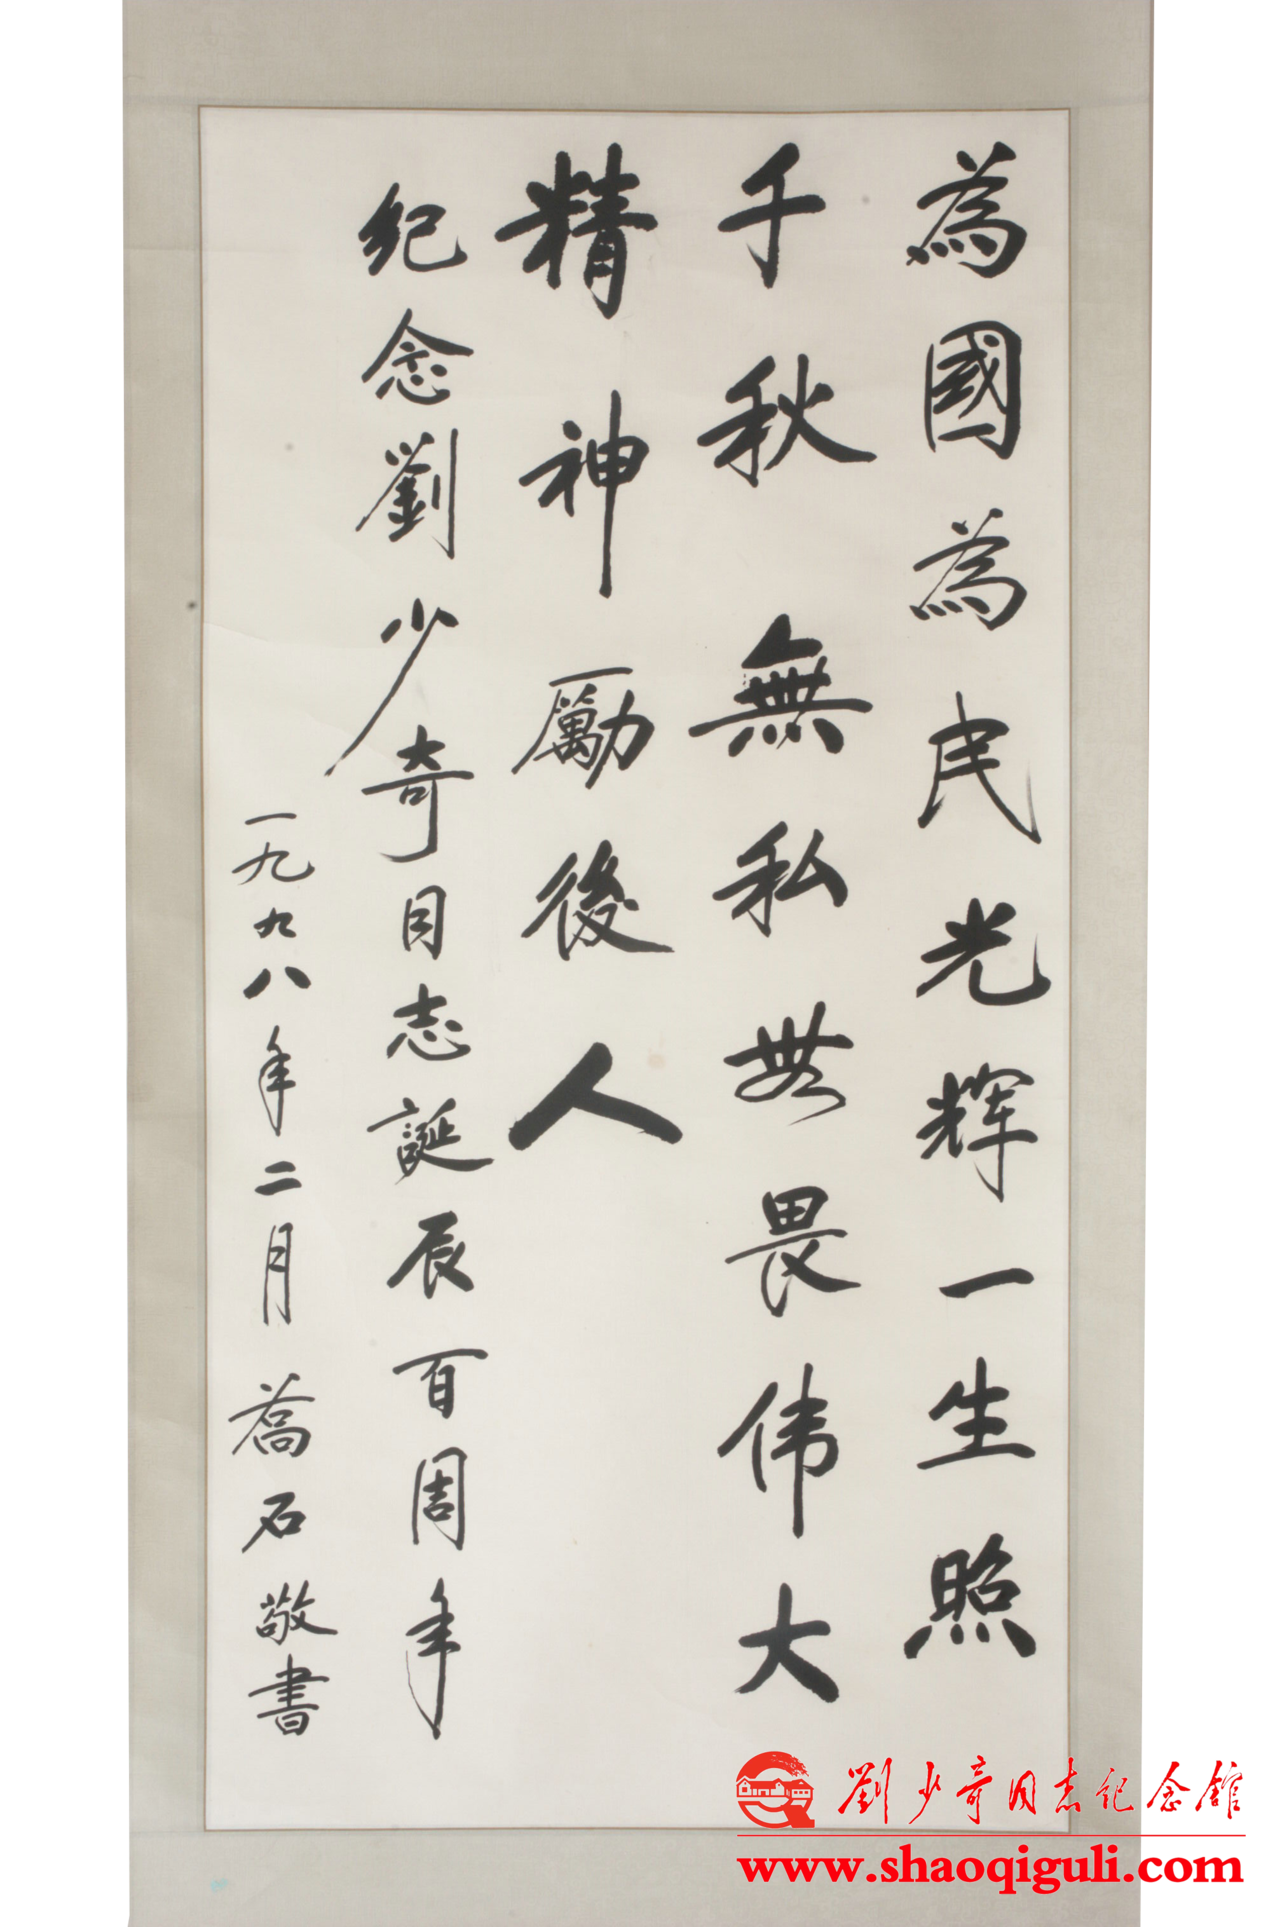 為國為民光辉一生照
千秋無私無畏伟大
精神勵後人
纪念劉少奇同志誕辰百周年
一九九八年二月喬石敬書
劉少奇同志纪念館
www.shaoqiguli.com